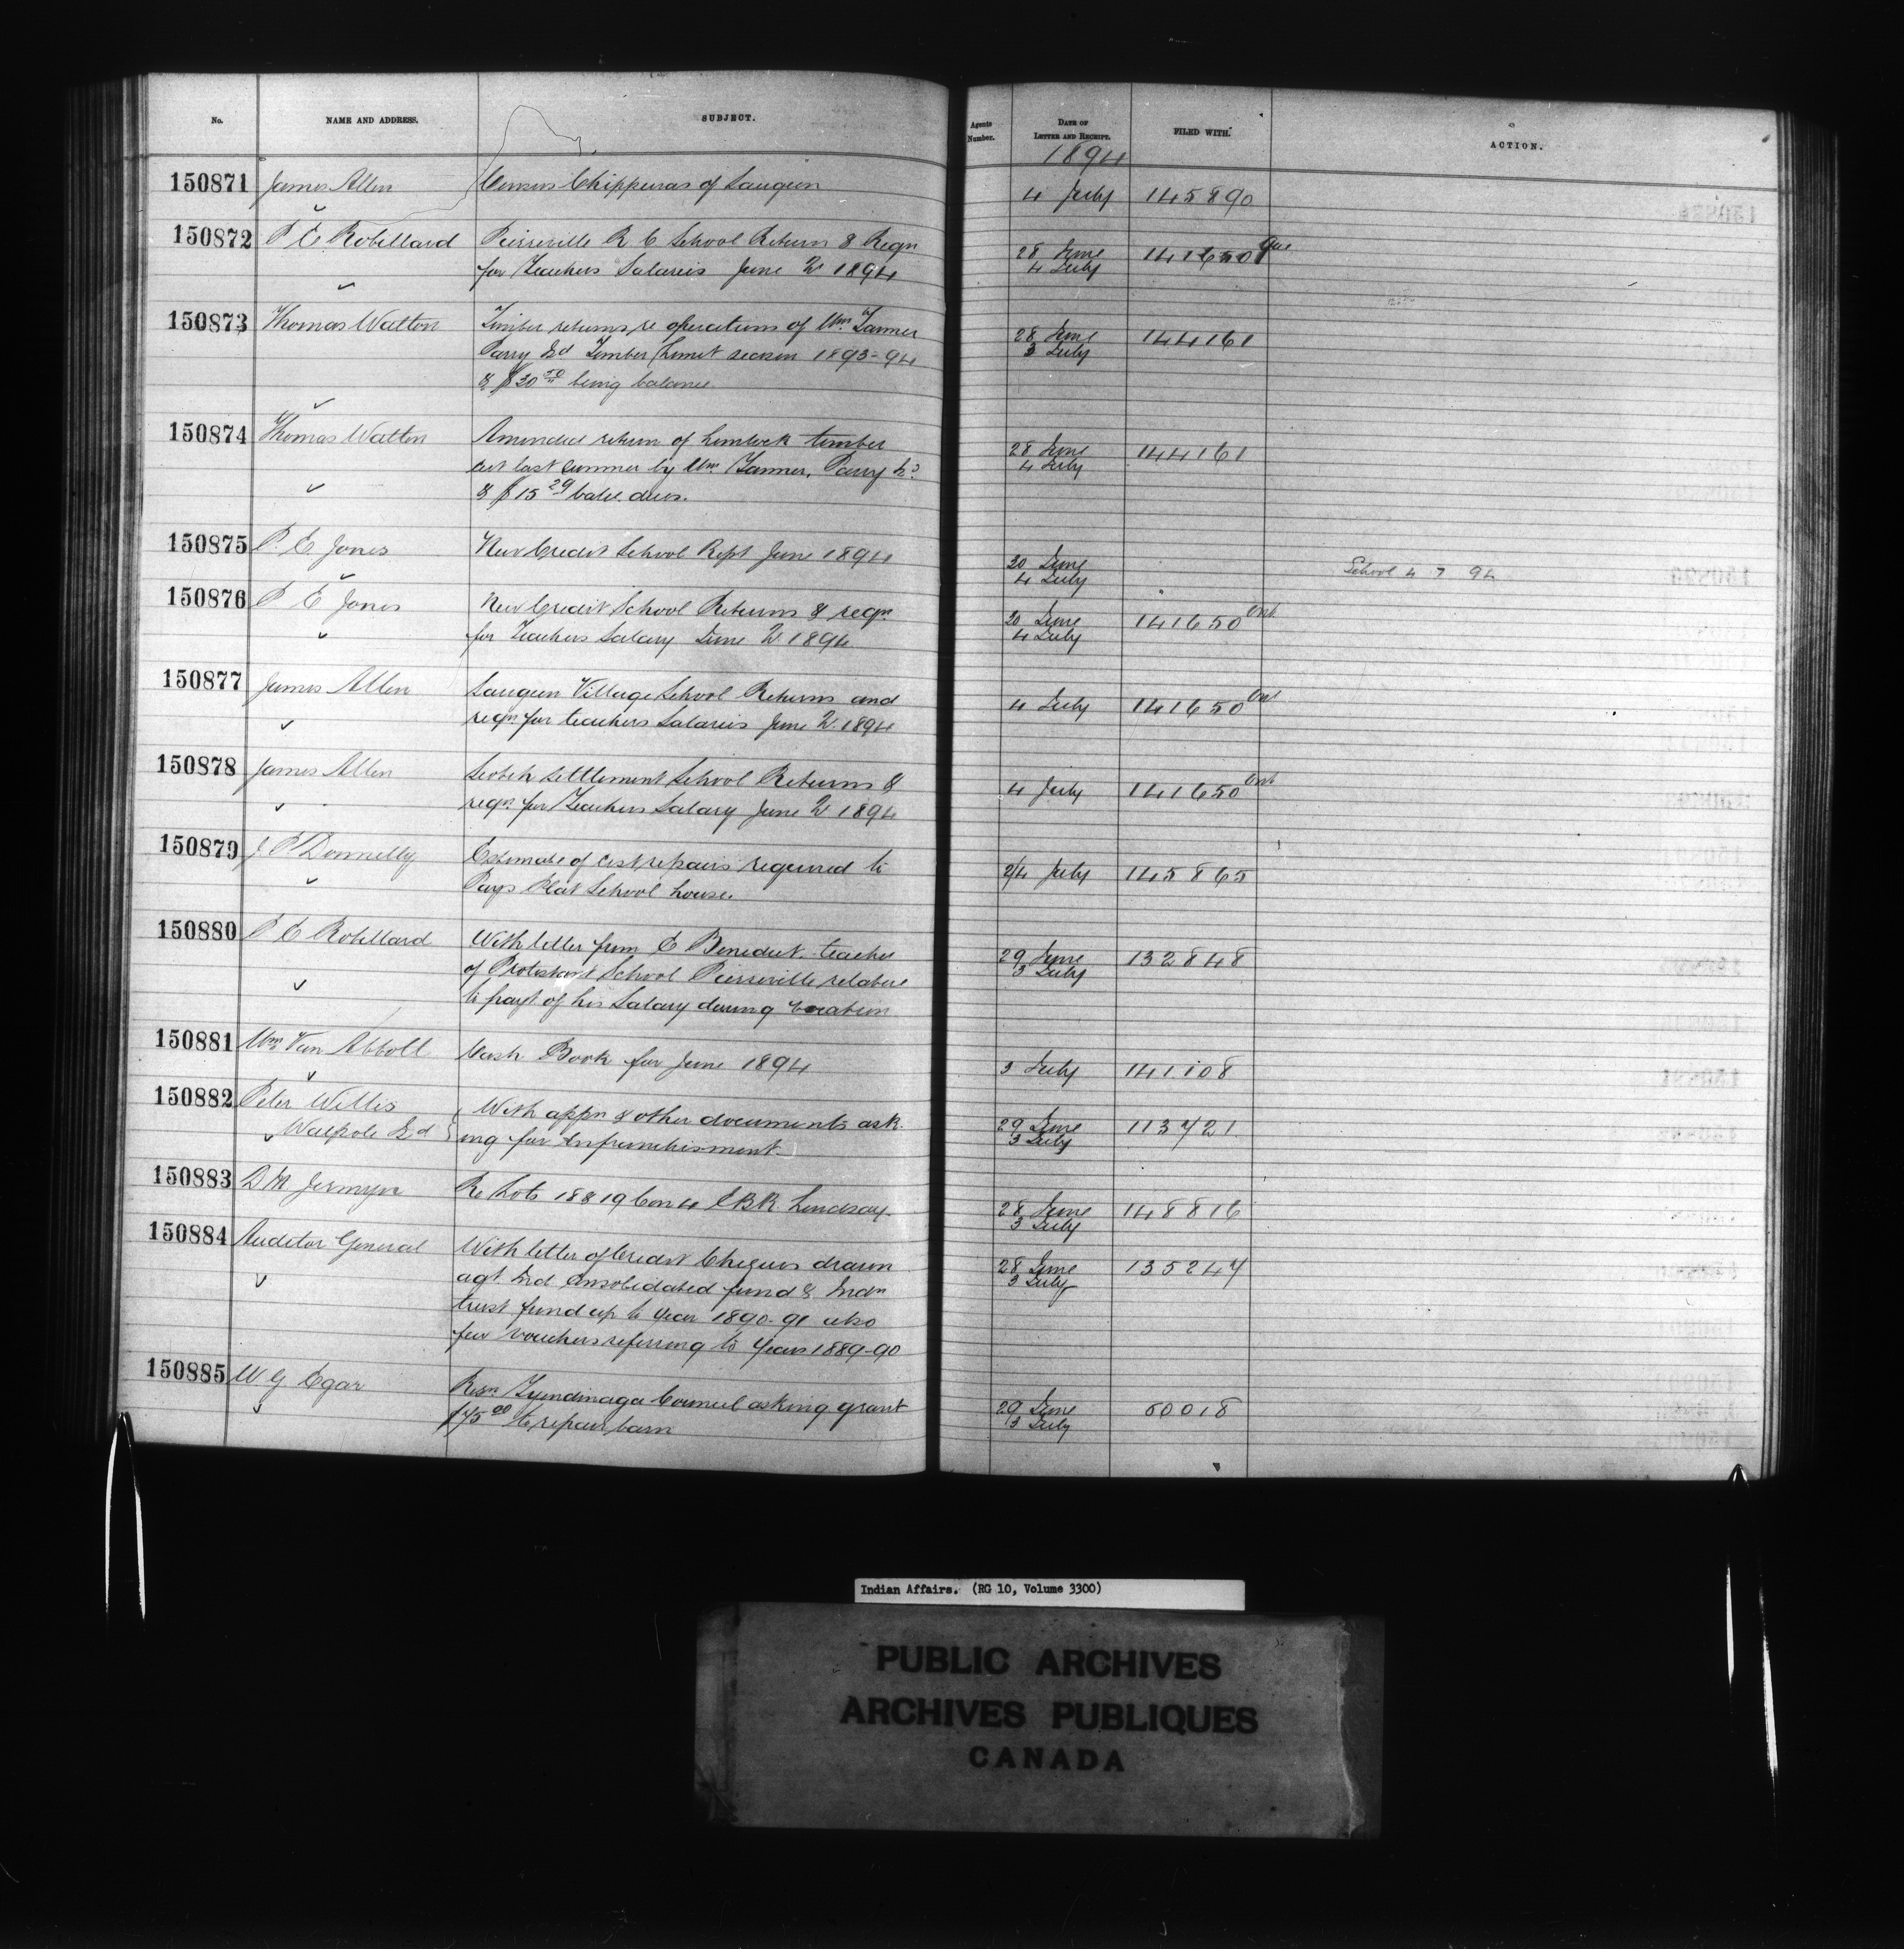 No. NAME AND ADDRESS. SUBJECT. Agents Number. DATE OF LETTER AND RECEIPT. FILED WITH. ACTION.
1894
150871 James Allen Census Chippewas of Saugeen 4 July 145890
150872 P E Robillard Pierreville R C School Return & Reqn 28 June 141650 Que
for Teachers Salaries June Qr 1894 4 July
150873 Thomas Walton Timber returns re operations of Wm Tanner 28 June 144161
Parry Isd Timber Limit season 1893-94 3 July
& $30 50 being balance
150874 Thomas Walton Amended return of hemlock timber 28 June 144161
cut last summer by Wm Tanner, Parry Id 4 July
& $15 29 balce. dues.
150875 P. E Jones New Credit School Rept June 1894 30 June School 4 7 94
4 July
150876 P E Jones New Credit School Returns & reqn 30 June 141650 Ont
for Teachers Salary June Qr 1894 4 July
150877 James Allen Saugeen Village School Returns and 4 July 141650 Ont
reqn for teachers Salaries June Qr 1894
150878 James Allen Scotch Settlement School Returns & 4 July 141650 Ont
reqn for Teachers Salary June Qr 1894
150879 J P Donnelly Estimate of cost repairs required to 2/4 July 145865
Pays Plat School house.
150880 P E Robillard With letter from E Benedict teacher 29 June 132848
of Protestant School Pierreville relative 3 July
to payt of his Salary during vacation
150881 Wm Van Abbott Cash Book for June 1894 3 July 141108
150882 Peter Willis With appn & other documents ask 29 June 113721
Walpole Isd ing for Enfranchisement 3 July
150883 D M Jermyn Re Lots 18 & 19 Con 4 E B R Lindsay 28 June 148816
3 July
150884 Auditor General With letter of Credit Cheques drawn 28 June 135247
agt Ind Consolidated fund & Indn 3 July
trust fund up to year 1890-91 also
few vouchers referring to Years 1889-90
150885 W G Egar Resn Tyendinaga Council asking grant 29 June 60018
$75 00 to repair barn 3 July
Indian Affairs. (RG 10, Volume 3300)
PUBLIC ARCHIVES
ARCHIVES PUBLIQUES
CANADA